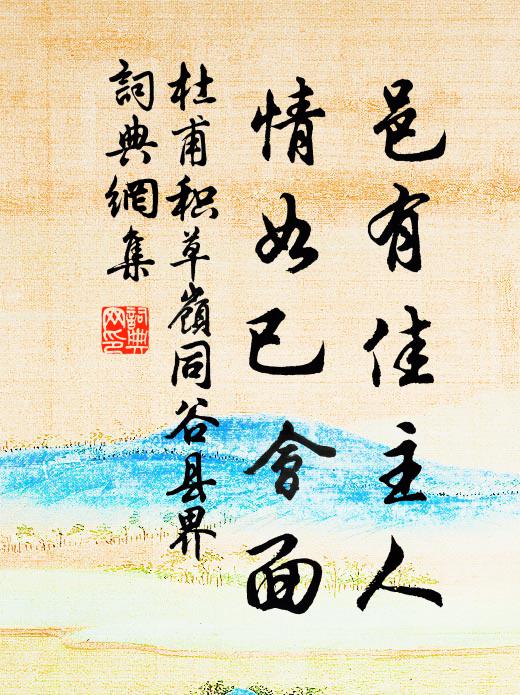 邑有佳主人
情如已會面
杜甫积草嶺同谷县界
詞典網集
詞典
网印